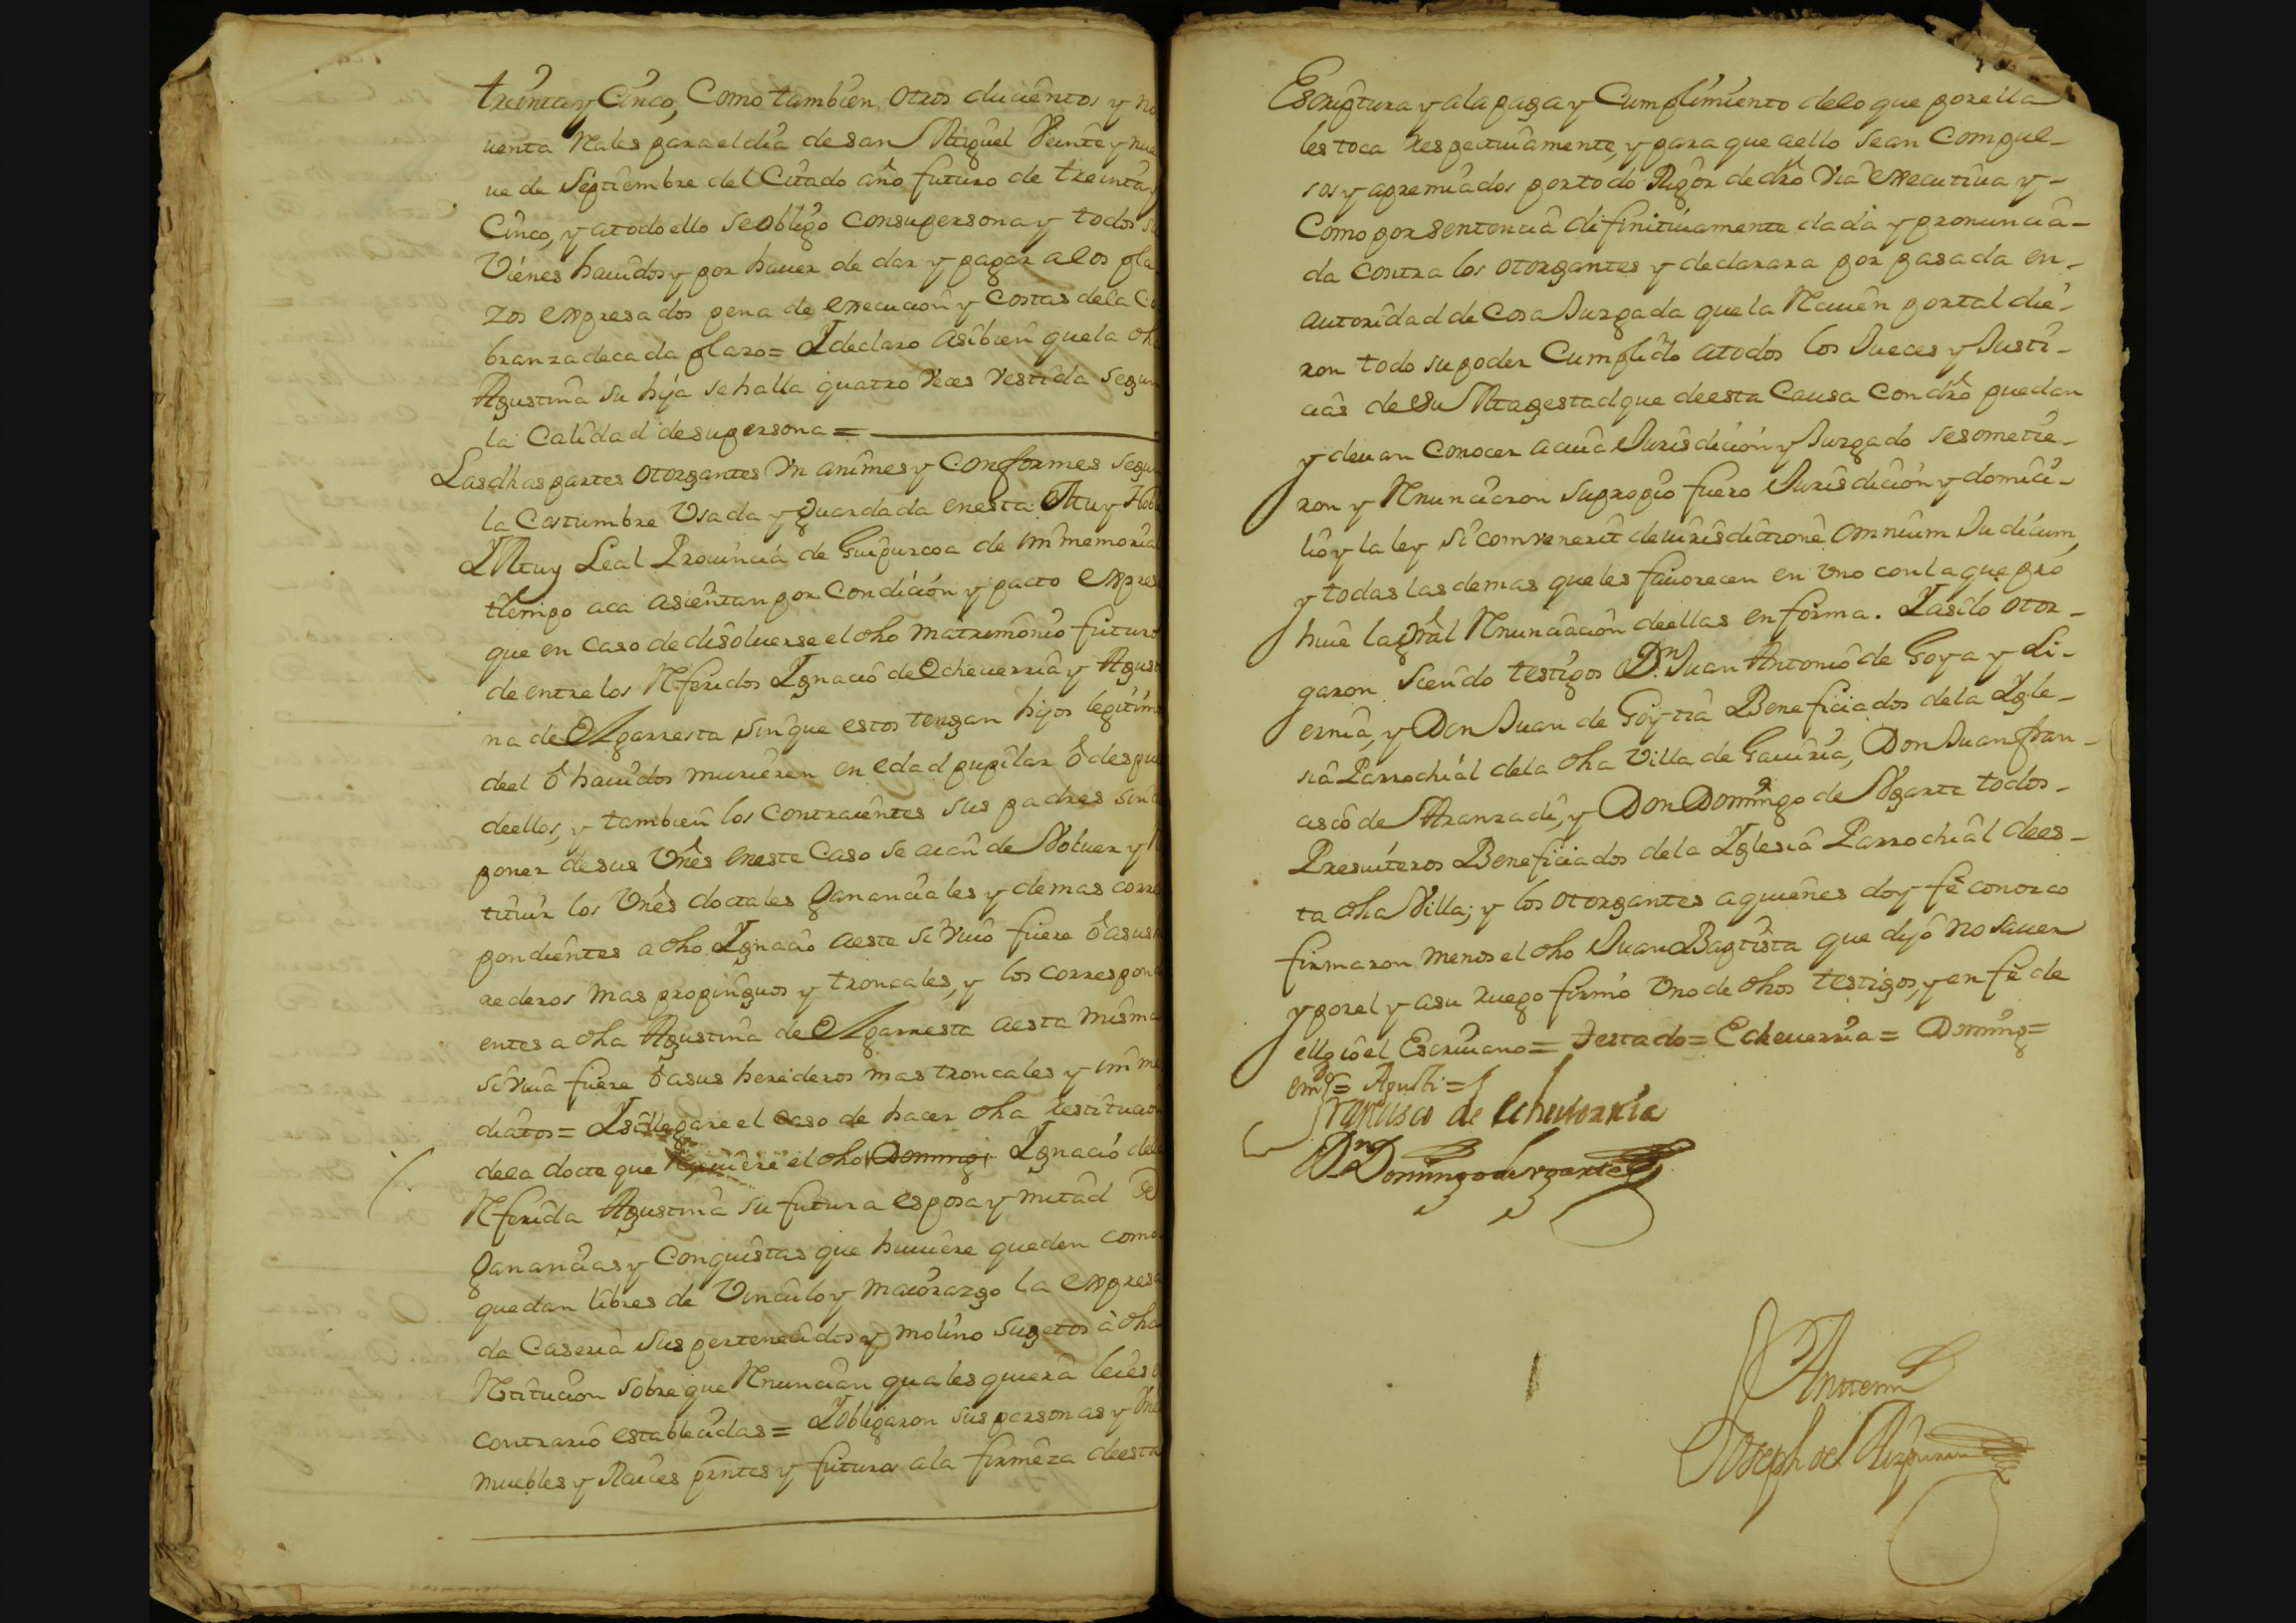 treinta y Cinco, Como tambien otros duçientos y no
uenta Rales para el dia de san Miguel Veinte y nue
ue de Septiembre del Citado año futuro de treinta y
Cinco, y atodo ello se obligo consupersona y todos su
Vienes hauidos y por hauer de dar y pagar a los pla
zos expresados pena de execucion y Costas de la Co
branza de cada plazo = Y declaro asibien que la dha
Agustina su hija se halla quatro veces vestida segun
la Calidad de su persona =
Las dhas partes otorgantes Vnanimes y Conformes segun
la Costumbre Vsada y guardada en esta Muy Noble
Y Muy Leal Prouincia de Guipuzcoa de immemorial
tiempo aca asientan por Condicion y pacto expres
que en caso de disoluerse el dho matrimonio futuro
de entre los Referidos Ygnacio de Echeuerria y Agusti
na de Olgarresta sin que estos tengan hijos legitim
de el ô hauidos murieren en edad pupilar ô despues
de ellos, y tambien los contraientes sus padres sin
poner de sus Vnês en este Caso se aian de Voluer y
tituir los Vnês doctales gananciales y demas corres
pondientes a dho Ygnacio a este si viuo fuere ô a sus
rederos mas propinquos y troncales, y los correspond
entes a dha Agustina de Olgarresta a esta misma
si viua fuere ô a sus herederos mas troncales y imme
diatos = Y si llegare el caso de hacer dha restitucion
de la docte que el dho Domingo Ygnacio de la
Referida Agustina su futura esposa y mitad de
ganancias y Conquistas que huuiere queden como
quedan libres de Vinculo y maiorazgo la expresa
da Caseria sus pertenecidos y molino sugetos à dha
Restitucion sobre que Renuncian qualesquiera leies
contrario establecidas = Y obligaron sus personas y Vnês
muebles y Raices prntes y futuros a la firmeza de esta
Escriptura y a la paga y Cumplimiento de lo que por ella
les toca respectiuamente, y para que a ello sean Compul-
sos y apremiados por todo Rigor de dro Via executiua y -
Como por sentencia difinitiuamente dada y pronuncia-
da contra los otorgantes y declarara por pasada en -
autoridad de Cosa Juzgada que la Rauen por tal die-
ron todo su poder Cumplido a todos los Jueces y Justi-
cias de su Magestad que de esta Causa Con dro puedan
y deuan conocer a cuia Jurisdicion y Juzgado se sometie-
ron y Renunciaron su propio fuero Jurisdicion y domici-
lio y la ley si convenerit de iurisdictione omnium Judicum,
y todas las demas que les fauorecen en Vno con la que pro
hiue la gral Renunciacion de ellas en forma. Y asi lo otor-
garon siendo testigos Dn Juan Antonio de Goya y Li-
ernia, y Don Juan de Goytia Beneficiados de la Ygle-
sia Parrochial de la dha Villa de Gauiria, Don Juan fran-
cisco de Aranzadi, y Don Domingo de Vgarte todos -
Presuiteros Beneficiados de la Yglesia Parrochial de es-
ta dha Villa; y los otorgantes a quienes doy fe conozco
firmaron menos el dho Juan Baptista que dijo no sauer
y por el y a su ruego firmò Vno de dhos testigos, y en fe de
ello io el Escriuano = Testado = Echeuerria = Doming =
emdo = Agusti =
Francisco de Echeverria
Dn Domingo de vgarte
Antemi
Joseph de Aizpuru